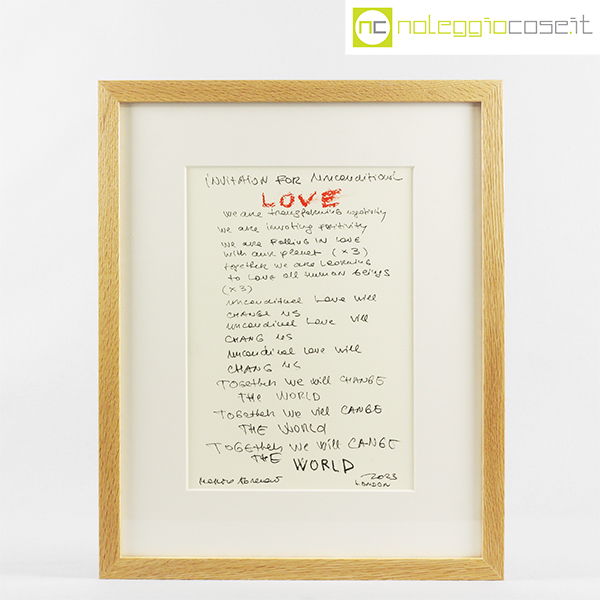 nc noleggiocose.it
INVITATION FOR UNCONDITIONAL
LOVE
we are transforming negativity
we are invoting positivity
we are FALLING IN LOVE
with our planet (x3)
together we are Learning
to Love all human beings
(x3)
unconditinal Love will
CHANGE US
unconditinal Love will
CHANG US
unconditinal love will
CHANG US
TOGETHER We will CHANGE
THE WORLD
TOGETHER We will CANGE
THE WORLD
TOGETHER We will CANGE
THE WORLD
2023
LONDON